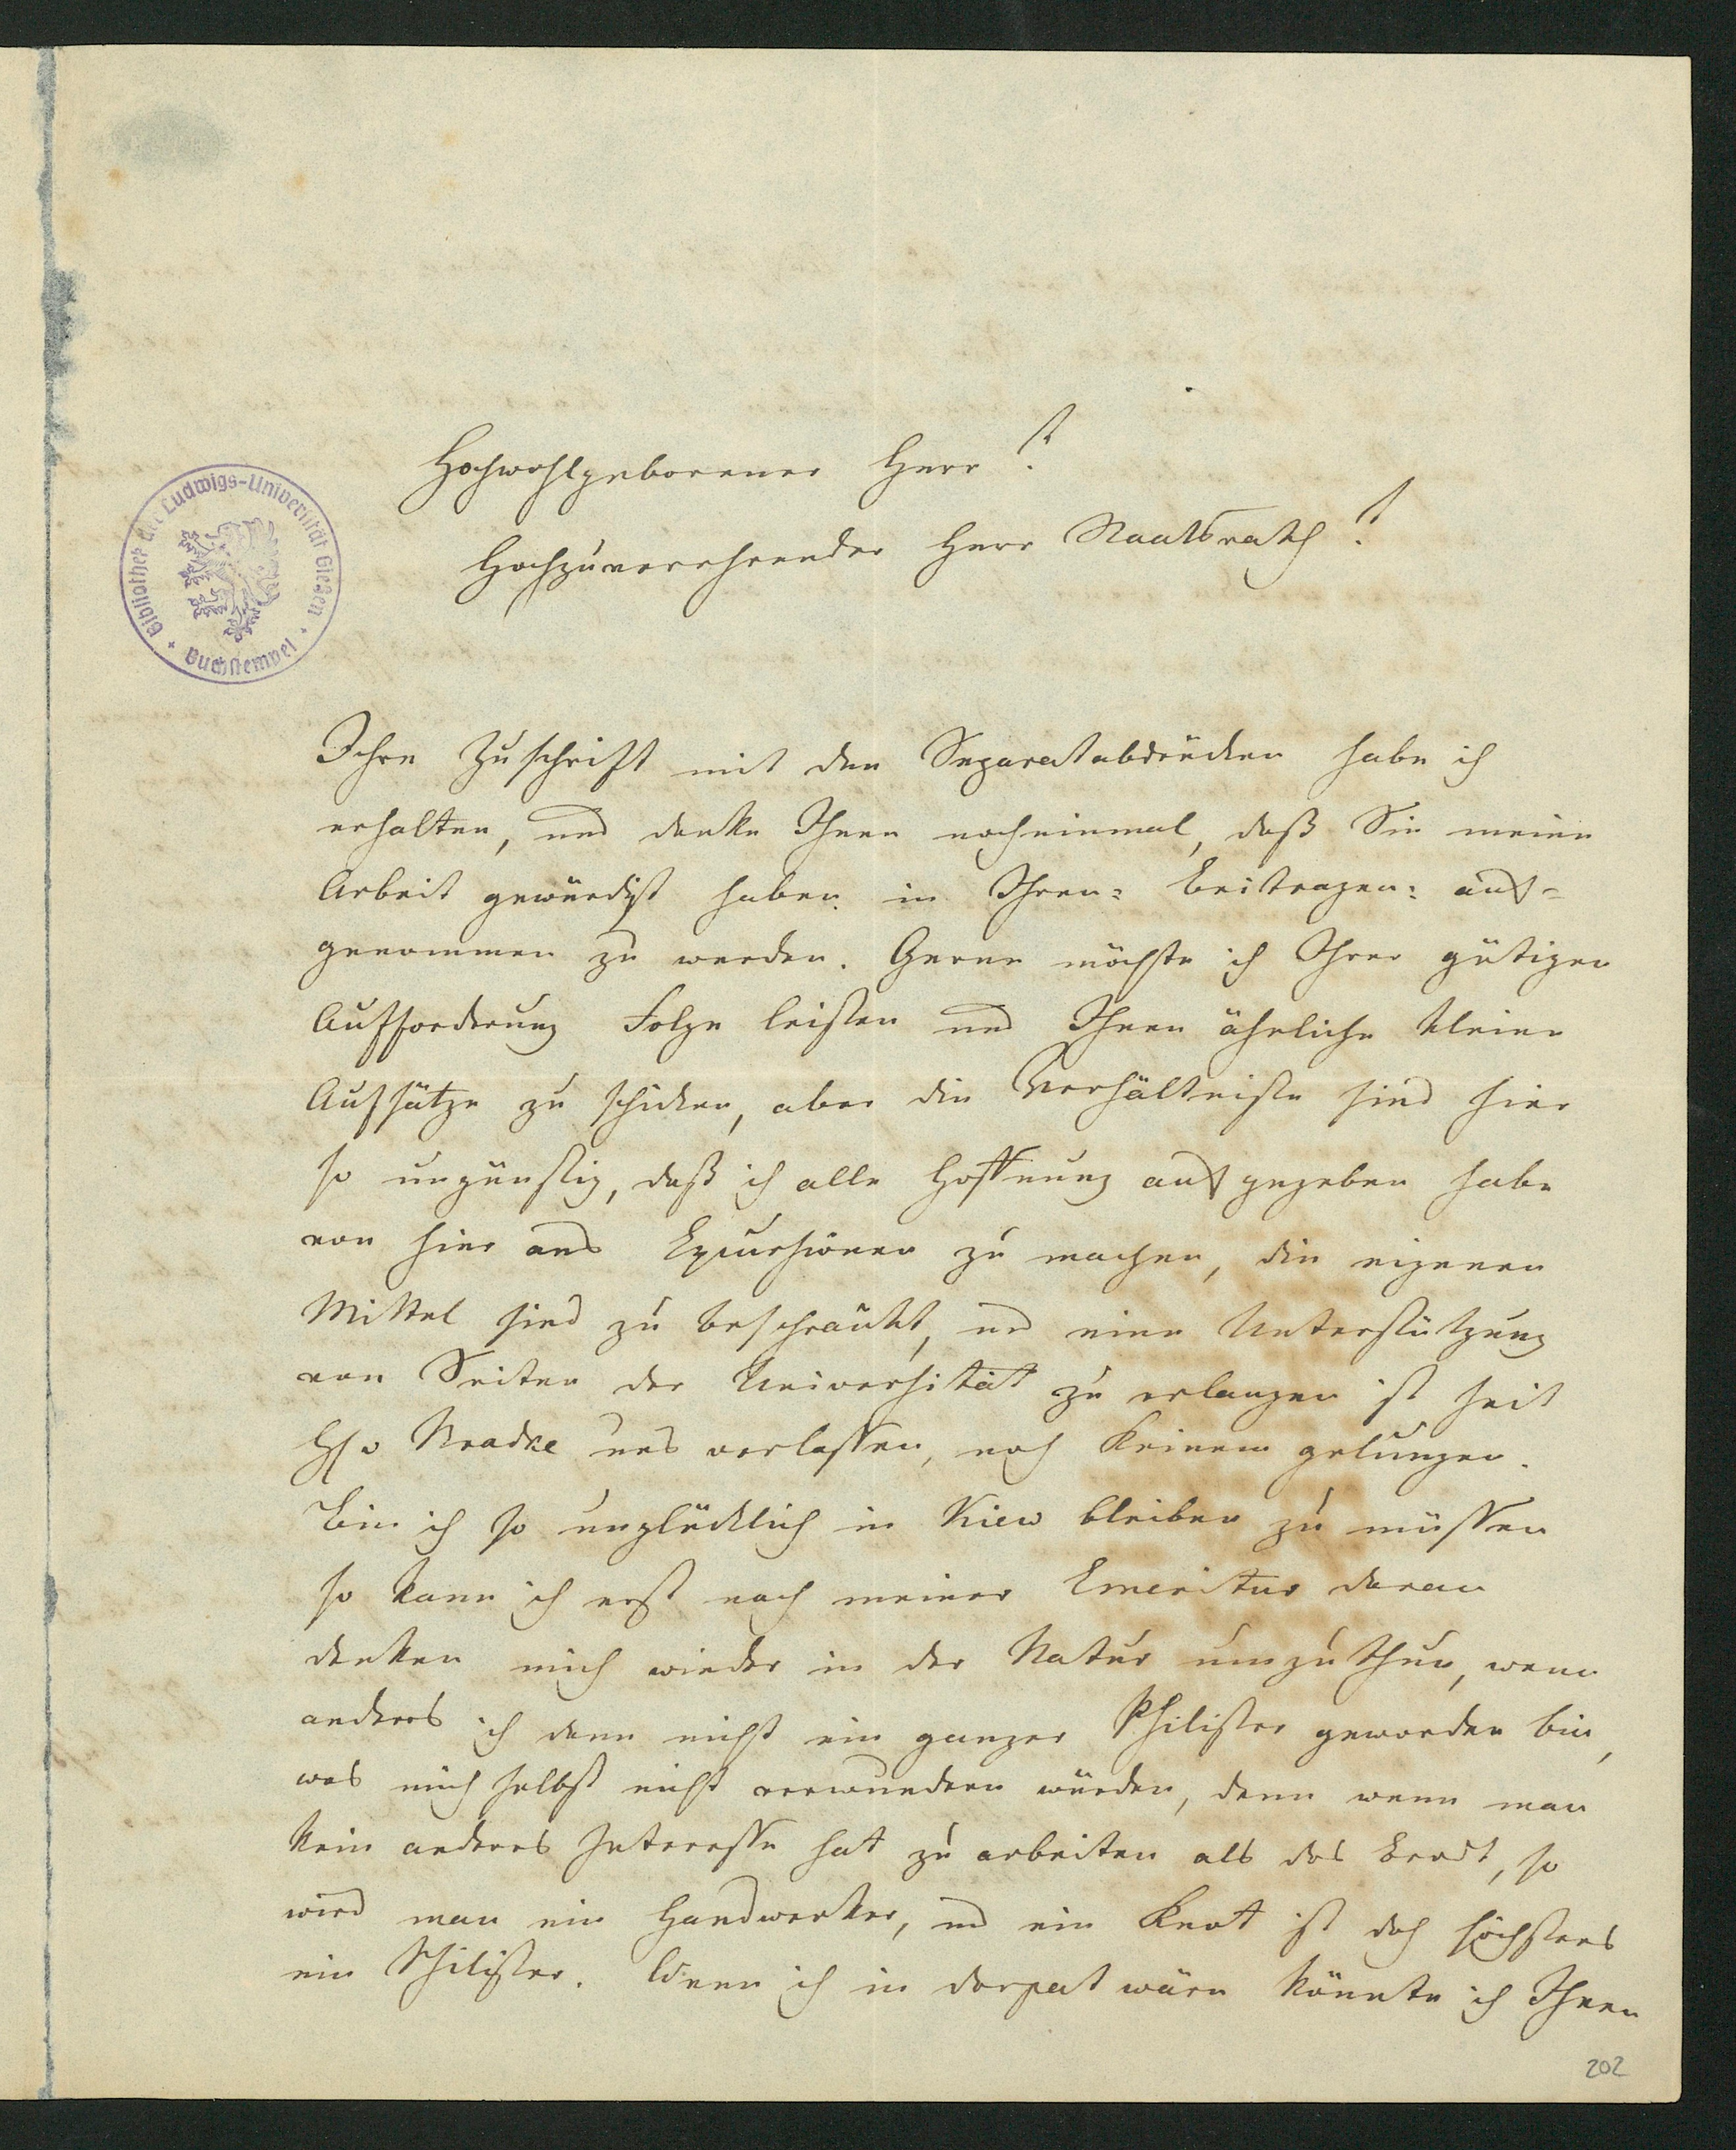 Hochwohlgeborener Herr!
Hochzuverehrender Herr Staatsrath!
Bibliothek der Ludwigs-Universität Gießen
Buchstempel
Ihre Zuschrift mit den Separatabdrücken habe ich
erhalten, und danke Ihnen nocheinmal, daß Sie meine
Arbeit gewürdigt haben in Ihren: Beitragen: auf-
genommen zu werden. Gerne möchte ich Ihrer gütigen
Aufforderung Folge leisten und Ihnen ähnliche kleine
Aufsätze zu schicken, aber die Verhältniße sind hier
so ungünstig, daß ich alle Hoffnung aufgegeben habe
von hier aus Excursionen zu machen, die eigenen
Mittel sind zu beschränkt, und eine Unterstützung
von Seiten der Universität zu erlangen ist seit
H v Bradke uns verlassen, noch Keinem gelungen.
Bin ich so unglücklich in Kiew bleiben zu müssen
so kann ich erst nach meiner Emeritur daran
denken mich wieder in der Natur umzuthun, wenn
anders ich dann nicht ein ganzer Philister geworden bin,
was mich selbst nicht verwundern würde, denn wenn man
kein anderes Interesse hat zu arbeiten als das Brodt, so
wird man ein Handwerker, und ein Knot ist doch höchstens
ein Philister. Wenn ich in Dorpat wäre könnte ich Ihnen
202